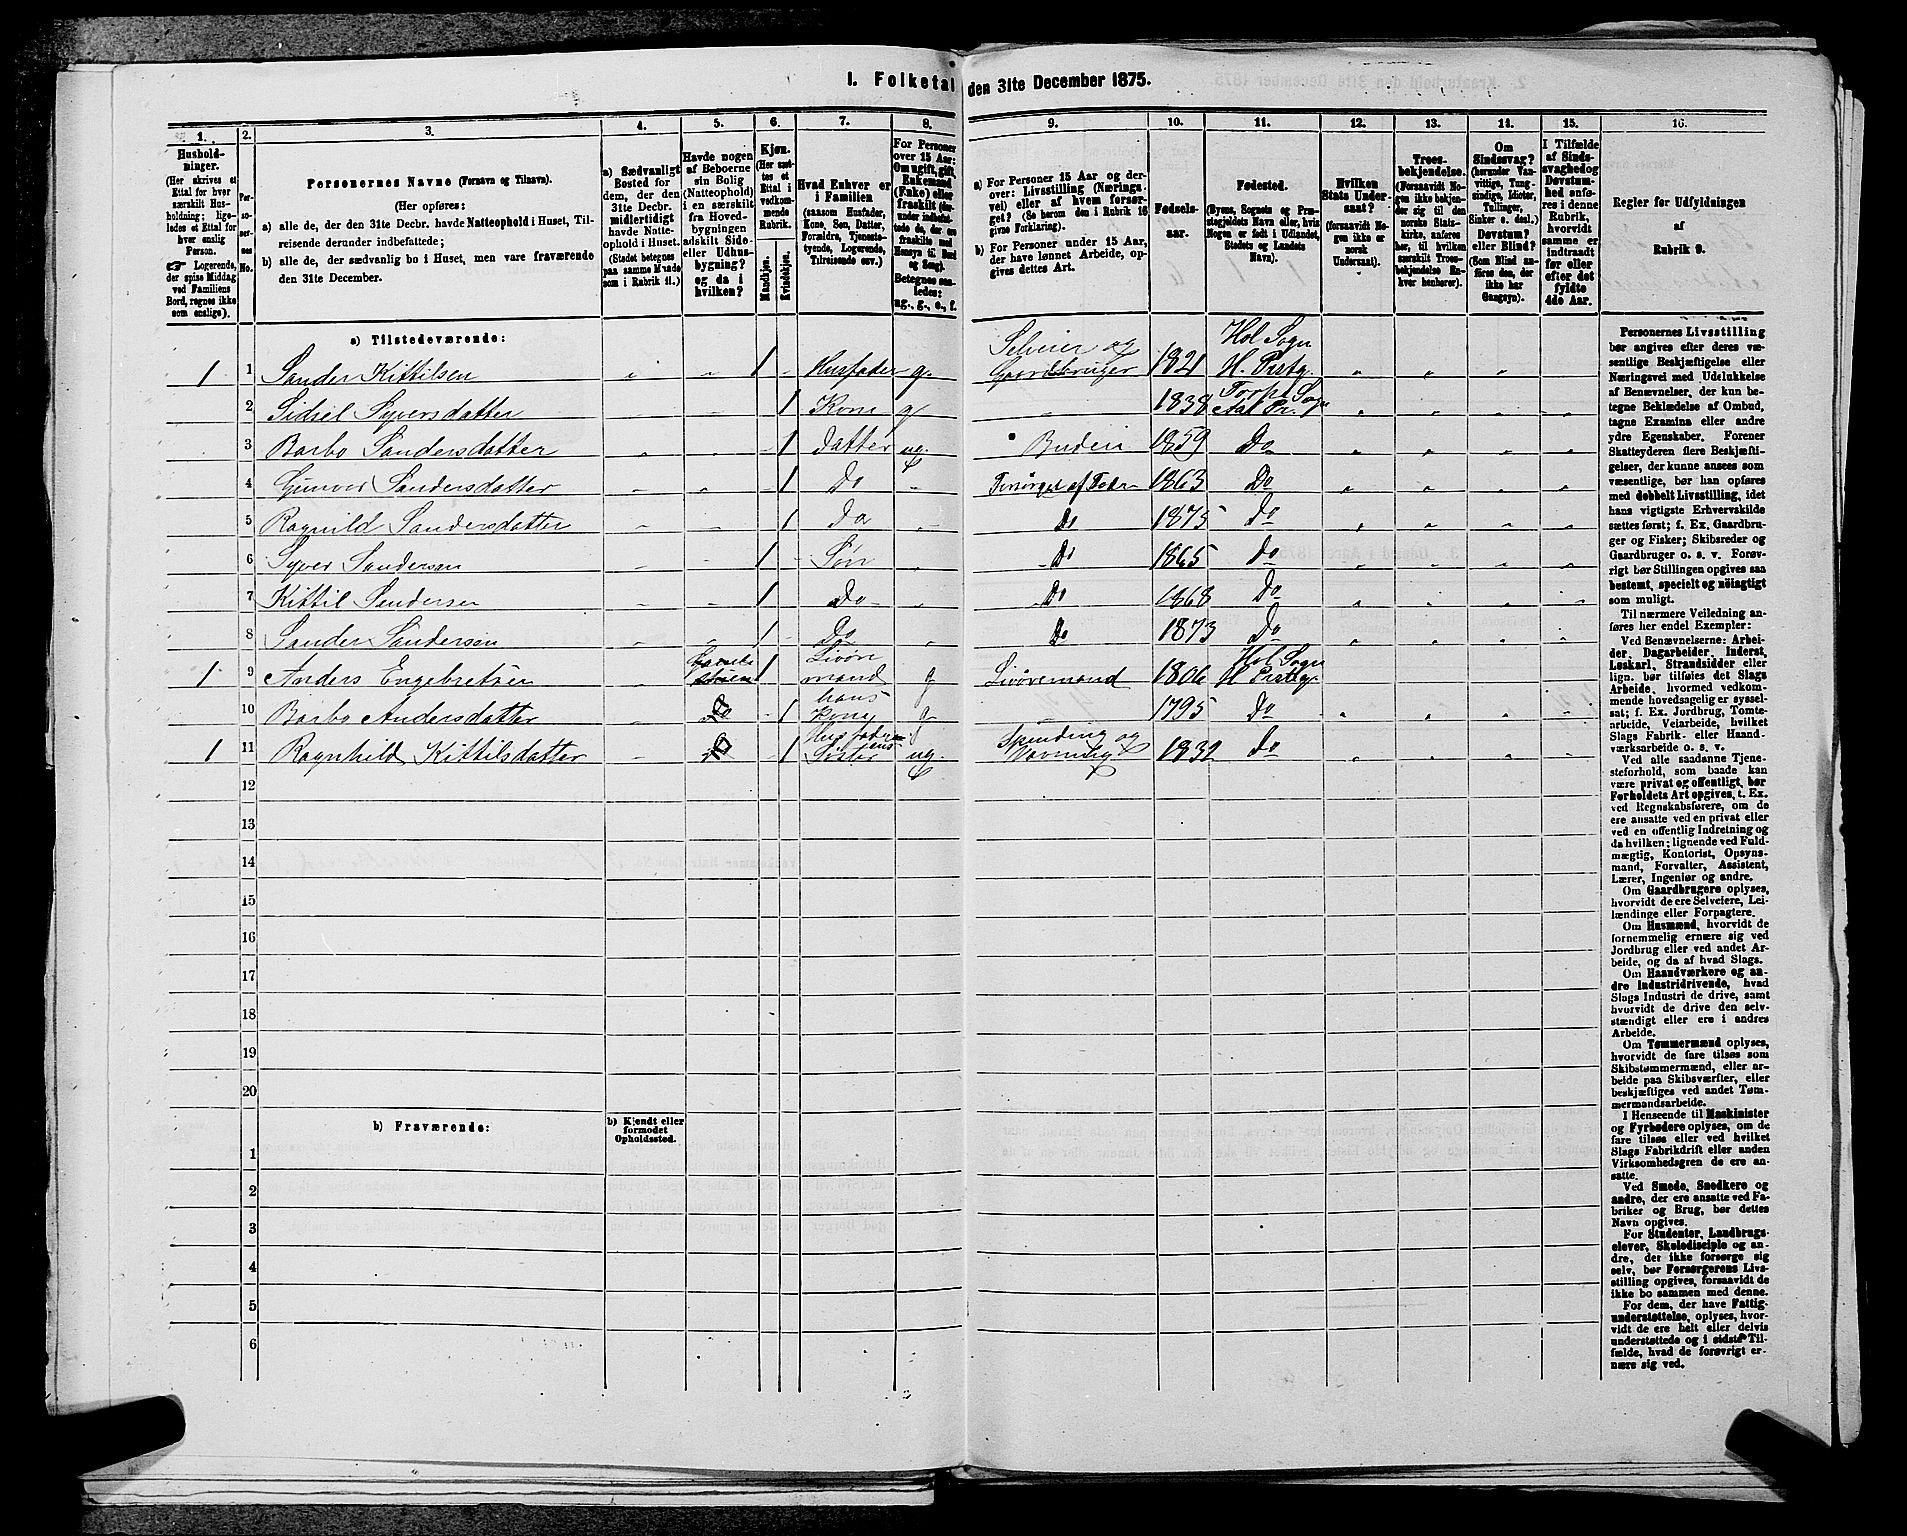 1. Folketal den 31te December 1875.
1. 2. 3. 4. 5. 6. 7. 8. 9. 10. 11. 12. 13. 14. 15. 16.
Husholdninger.
(Her skrives et
Ettal for hver
særskilt Husholdning; ligeledes et Ettal for
hver enslig
Person.
Logerende,
der spise Middag
ved Familiens
Bord, regnes ikke
som enslige).
Personernes No.
Personernes Navne (Fornavn og Tilnavn).
(Her opføres:
a) alle de, der den 31te Decbr. havde Natteophold i Huset, Tilreisende derunder indbefattede;
b) alle de, der sædvanlig bo i Huset, men vare fraværende
den 31te December.
a) Sædvanligt
Bosted for
dem, der den
31te Decbr.
midlertidigt
havde Natteophold i Huset.
(Stedet betegnes
paa samme Maade
som i Rubrik 11.)
Havde nogen
af Beboerne
sin Bolig
(Natteophold)
i en særskilt
fra Hovedbygningen
adskilt Side-
eller Udhusbygning? og da i
hvilken?
Kjøn.
(Her sættes et
Ettal i
vedkommende
Rubrik.
Mandkjøn.
Kvindekjøn.
Hvad Enhver er
i Familien
(saasom Husfader,
Kone, Søn, Datter,
Forældre, Tjenestetyende, Logerende,
Tilreisende osv.)
For Personer
over 15 Aar:
Om ugift, gift,
Enkemand
(Enke) eller
fraskilt (derunder indbefattede de, der ere
fraskilte med
Hensyn til Bord
og Seng).
Betegnes saaledes:
ug., g., e., f.
a) For Personer 15 Aar og derover: Livsstilling (Næringsvei) eller af hvem forsørget? (Se herom den i Rubrik 16
givne Forklaring).
b) For Personer under 15 Aar,
der have lønnet Arbeide, opgives dettes Art.
Fødselsaar.
Fødested.
(Byens, Sognets og Præstegjeldets Navn eller, hvis
Nogen er født i Udlandet,
Stedets og Landets
Navn).
Hvilken
Stats Undersaat?
(forsaavidt Nogen ikke er
norsk
Undersaat).
Troesbekjendelse.
(Forsaavidt Nogen ikke bekjender sig til
den norske Statskirke, anføres
her, til hvilken
Troesbekjendelse Enhver henhører).
Om
Sindssvag?
(herunder Vanvittige, Tungsindige, Idioter,
Tullinger,
Sinker o. desl.).
Døvstum?
eller Blind?
(Som Blind anføres den, der
ikke har
Gangsyn).
I Tilfælde
af Sindssvaghed og
Døvstumhed anføres i denne
Rubrik,
hvorvidt
samme er
indtraadt
før eller
efter det
fyldte
4de Aar.
Regler for Udfyldningen
af
Rubrik 9.
a) Tilstedeværende:
1 1 Sander Kittilsen 1 Husfader g. Selveier og Gaardbruger 1821 Hol Sogn H. Prstg.
2 Sidsel Syversdatter 1 Kone g 1838 Torpe Sogn Aal Pr.
3 Barbo Sandersdatter 1 Datter ug. Budeie 1859 Do
4 Gunvor Sandersdatter 1 Do Forsørget af Fader 1863 Do
5 Ragnild Sandersdatter 1 Do Do 1875 Do
6 Syver Sandersen 1 Søn Do 1865 Do
7 Kittil Sandersen 1 Do Do 1868 Do
8 Sander Sandersen 1 Do Do 1873 Do
1 9 Anders Engebretsen 1 mand g 1806 Hol Sogn H Prstg.
10 Barbo Andersdatter Do 1 hans Kone g 1795 Do
1 11 Ragnhild Kittilsdatter 1 Husfaderens Sister ug. Spinding og 1832 Do
12
13
14
15
16
17
18
19
20
b) Fraværende:
b) Kjendt eller
formodet
Opholdssted.
1
2
3
4
5
6
Personernes Livsstilling
bør angives efter deres væsentlige Beskjæftigelse eller
Næringsvei med Udelukkelse
af Benævnelser, der kun betegne Beklædelse af Ombud,
tagne Examina eller andre
ydre Egenskaber. Forener
Skatteyderen flere Beskjæftigelser, der kunne ansees som
væsentlige, bør han opføres
med dobbelt Livsstilling, idet
hans vigtigste Erhvervskilde
sættes først; f. Ex. Gaardbruger og Fisker; Skibsreder og
Gaardbruger o. s. v. Forøvrigt bør Stillingen opgives saa
bestemt, specielt og nöiagtigt
som muligt.
Til nærmere Veiledning anføres her endel Exempler:
Ved Benævnelserne: Arbeider, Dagarbeider, Inderst,
Løskarl, Strandsidder eller
lign. bør tilføies det Slags
Arbeide, hvormed vedkommende hovedsagelig er sysselsat; f. Ex. Jordbrug, Tomtearbeide, Veiarbeide, hvilket
Slags Fabrik- eller Haandværksarbeide o. s. v.
Ved alle saadanne Tjenesteforhold, som baade kan
være privat og offentligt, bør
Forholdets Art opgives, t. Ex.
ved Regnskabsførere, om de
ere ansatte ved en privat eller
ved en offentlig Indretning og
da hvilken; lignende ved Fuldmægtig, Kontorist, Opsynsmand, Forvalter, Assistent,
Lærer, Ingeniør og andre.
Om Gaardbrugere oplyses,
hvorvidt de ere Selveiere, Leilændinge eller Forpagtere.
Om Husmænd, hvorvidt de
fornemmelig ernære sig ved
Jordbrug eller ved andet Arbeide, og da af hvad Slags.
Om Haandværkere og andre Industridrivende, hvad
Slags Industri de drive, samt
hvorvidt de drive den selvstændigt eller ere i andres
Arbeide.
Om Tømmermænd oplyses,
hvorvidt de fare tilsøs som
Skibstømmermænd, eller arbeide paa Skibsværfter, eller
beskjæftiges ved andet Tømmermandsarbeide.
I Henseende til Maskinister
og Fyrbødere oplyses, om de
fare tilsøs eller ved hvilket
Slags Fabrikdrift eller anden
Virksomhedsgren de ere ansatte.
Ved Smede, Snedkere og
andre, der ere ansatte ved Fabriker og Brug, bør dettes
Navn opgives.
For Studenter, Landbrugselever, Skoledisciple og andre, der ikke forsørge sig
selv, bør Forsørgerens Livsstilling opgives, forsaavidt de
ikke bo sammen med denne.
For dem, der have Fattigunderstøttelse, oplyses, hvorvidt de ere helt eller delvis
understøttede og i sidste Tilfælde, hvad de forøvrigt ernære sig ved.